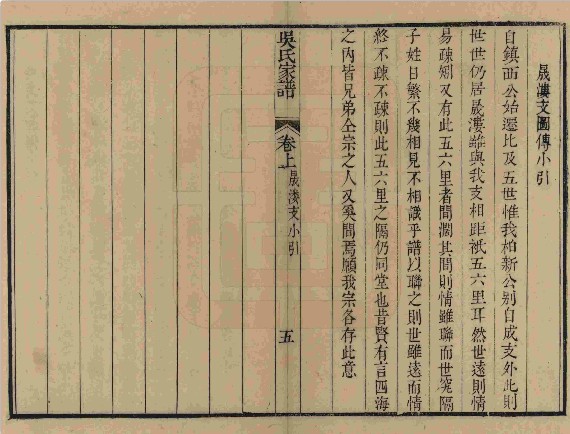 晟漊支圖傳小引
自鎮西公始遷比及五世惟我柏新公別自成支外此則
世世仍居晟漊雖與我支相距祇五六里耳然世遠則情
易疎矧又有此五六里者間濶其間則情雖聯而世寖隔
子姓日繁不幾相見不相識乎譜以聯之則世雖遠而情
終不疎不疎則此五六里之隔仍同堂也昔賢有言四海
之內皆兄弟仝宗之人又奚間焉願我宗各存此意
吳氏家譜
卷上
晟漊支小引
五